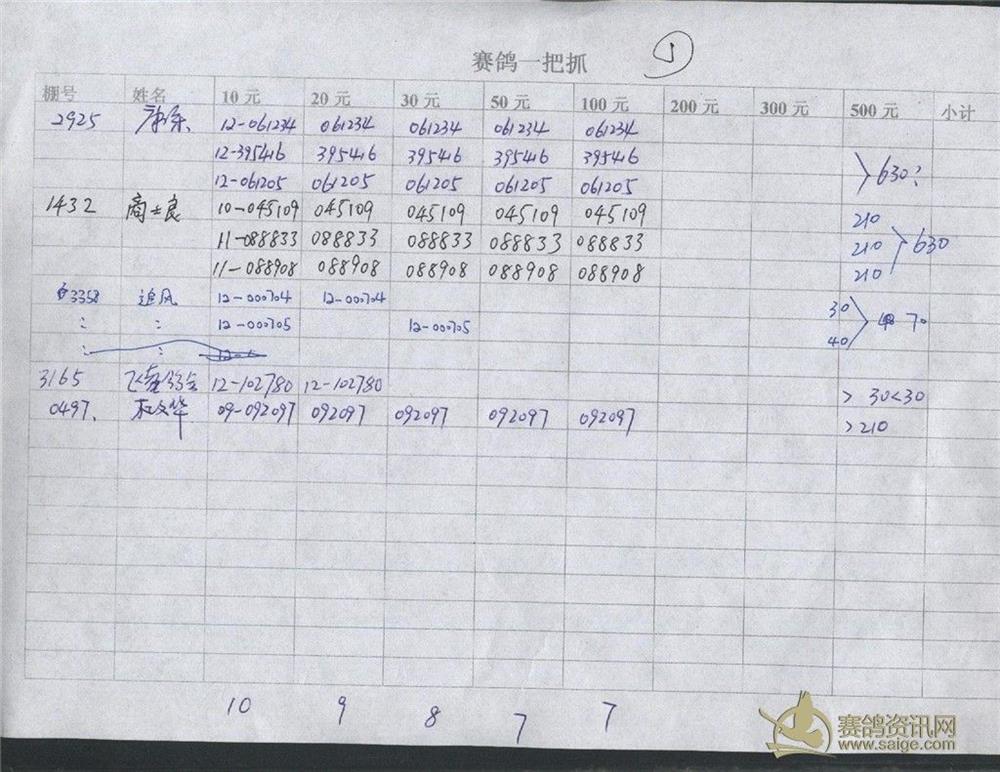 赛鸽一把抓
棚号 姓名 10元 20元 30元 50元 100元 200元 300元 500元 小计
2925 12-061234 061234 061234 061234 061234
12-395416 395416 395416 395416 395416 630
12-061205 061205 061205 061205 061205
1432 商士良 10-045109 045109 045109 045109 045109 210
11-088833 088833 088833 088833 088833 210 630
11-088908 088908 088908 088908 088908 210
3358 追风 12-000704 12-000704 30
: : 12-000705 12-000705 70
: : 40
3165 12-102780 12-102780 > 30<30
0497. 杜文华 09-092097 092097 092097 092097 092097 >210
10 9 8 7 7
赛鸽资讯网
www.saige.com